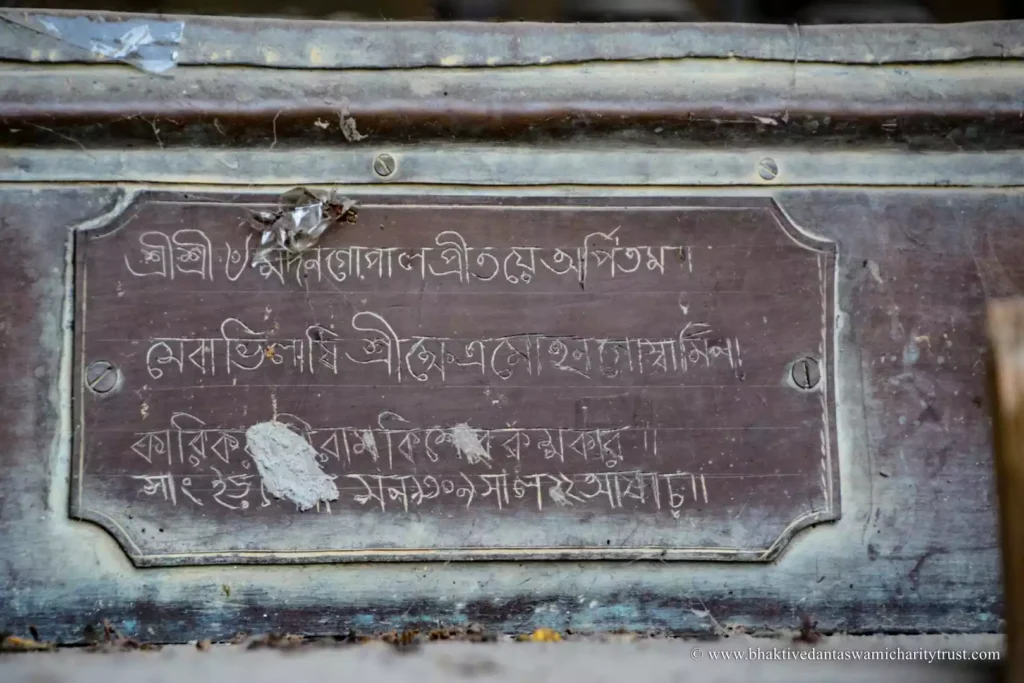 শ্রীশ্রী ৺ মদনগোপাল প্রীতয়ে অর্পিতম।
সেবাভিলাষি শ্রীক্ষেত্রমোহন গোস্বামিনা।
কারিকর রামকিশোর কর্ম্মকার ॥
সাং সন ১৩০৯ সাল আষাঢ় ॥
© www.bhaktivedantaswamicharitytrust.com